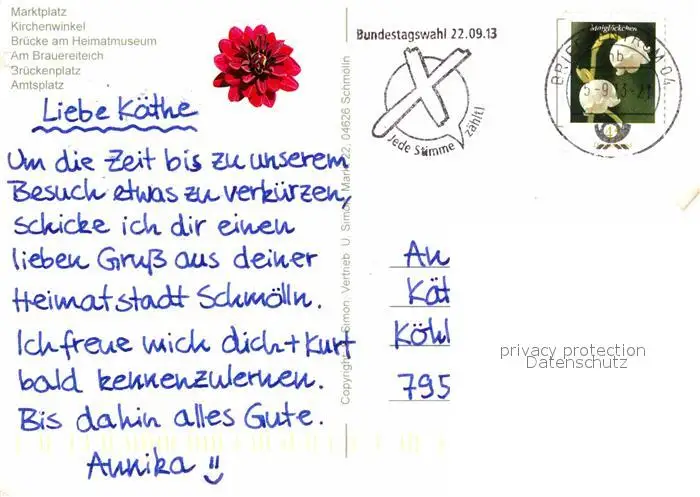 Marktplatz
Kirchenwinkel
Brücke am Heimatmuseum
Am Brauereiteich
Brückenplatz
Amtsplatz
Liebe Käthe
Um die Zeit bis zu unserem
Besuch etwas zu verkürzen,
schicke ich dir einen
lieben Gruß aus deiner
Heimatstadt Schmölln.
Ich freue mich dich + Kurt
bald kennenzulernen.
Bis dahin alles Gute.
Annika
Copyright Simon Vertrieb U. Simon, Markt 22, 04626 Schmölln
Bundestagswahl 22.09.13
Jede Stimme zählt!
Maiglöckchen
BRIEFZENTRUM 04
An
Kät
Köhl
795
privacy protection
Datenschutz